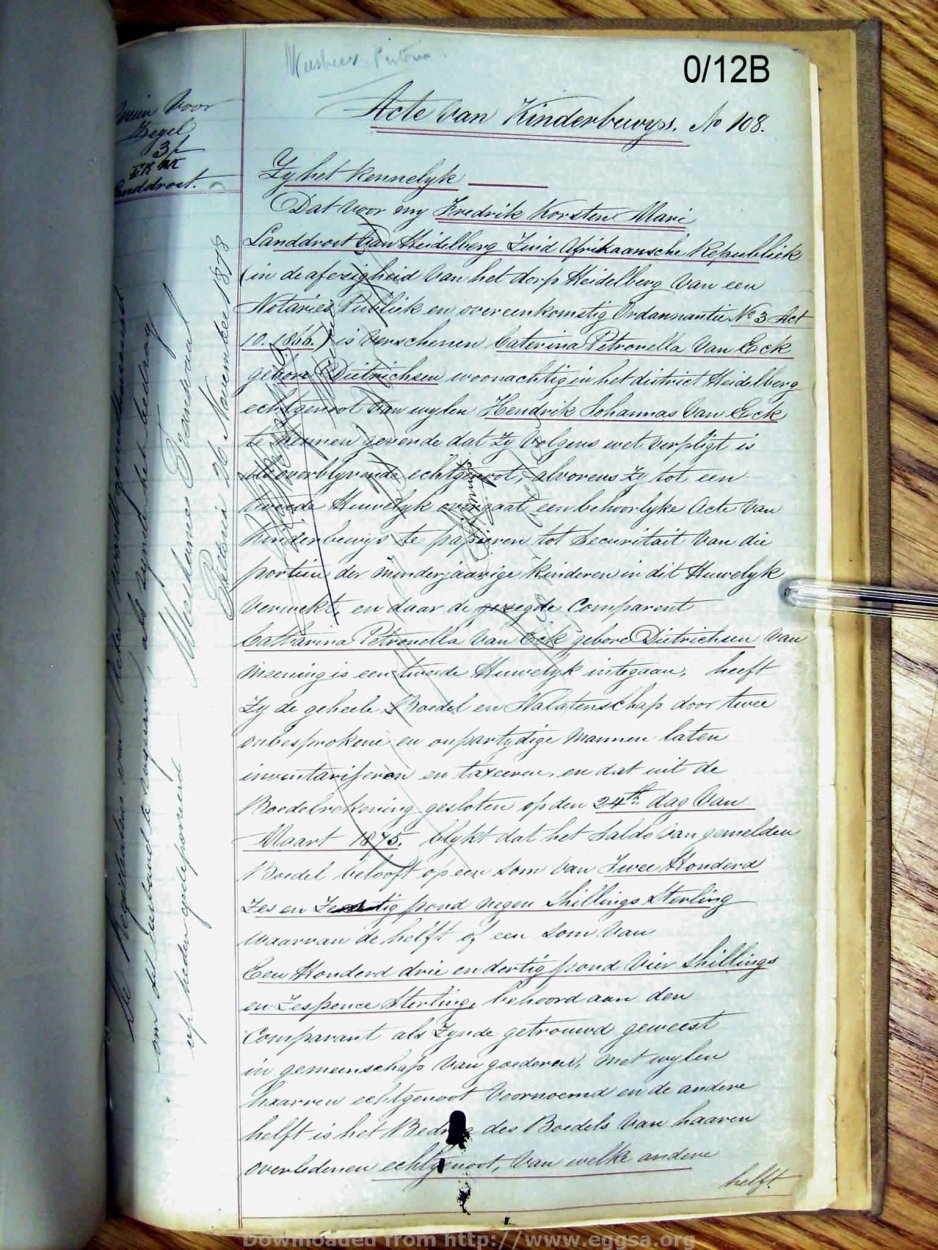 0/12B
Weesheer Pretoria
Acte Van Kinderbewys. No 108.
voor
Zegel
3/
Landdrost.
Zy het Kennelyk
Dat voor my Fredrik Korsten Mari
Landdrost Van Heidelberg Zuid Afrikaansche Republiek
(in de afezigheid Van het dorp Heidelberg Van een
Notaries Publiek en overeenkomstig Ordannantie No 3 Act
10. 1866.) is Verschenen Caterina Petronella Van Eck
gebore Dietrichsen woonachtig in het district Heidelberg
echtgenoot Van wylen Hendrik Johannas Van Eeck
te kennen gevende dat Zy Volgens wet Verpligt is
als overblyvende echtgenoot, alvorens Zy tot een
tweede Huwelyk overgaat een behoorlyke Acte Van
Kinderbewys te passeren tot Securitait Van die
portien der Minderjaarige Kinderen in dit Huwelyk
Verwekt, en daar de Comparent
Catharina Petronella Van Eck gebore Dietrichsen Van
Meening is een tweede Huwelyk integaan, heeft
Zy de geheele Boedel en Nalatenschap door twee
onbesprokene en onpartydige Mannen laten
inventariseren en taxeeren, en dat uit de
Boedelrekening gesloten op den 24th dag Van
Maart 1875. blykt dat het Saldo Van gemelden
Boedel beloopt op een Som Van Twee Honderd
Zes en Zestig pond Negen Shillings Sterling
Waarvan de helft of een Som Van
Een Honderd drie en dertig pond Vier Shillings
en Zespence Sterling, behoord aan den
Comparant als Zynde getrouwd geweest
in gemeenschap Van goederen, Met wylen
haaren echtgenoot Voornoemd en de andere
helft is het Bedrag des Boedels Van haaren
overledenen echtgenoot, Van welke andere
helft.
De Registrateur van Acten wordt geauthoriseerd
om het verband te royeeren, als zynde het bedrag
op heden gedeponeerd
Weeskamer Transvaal
Pretoria 26 November 1878
Downloaded from http://www.eggsa.org